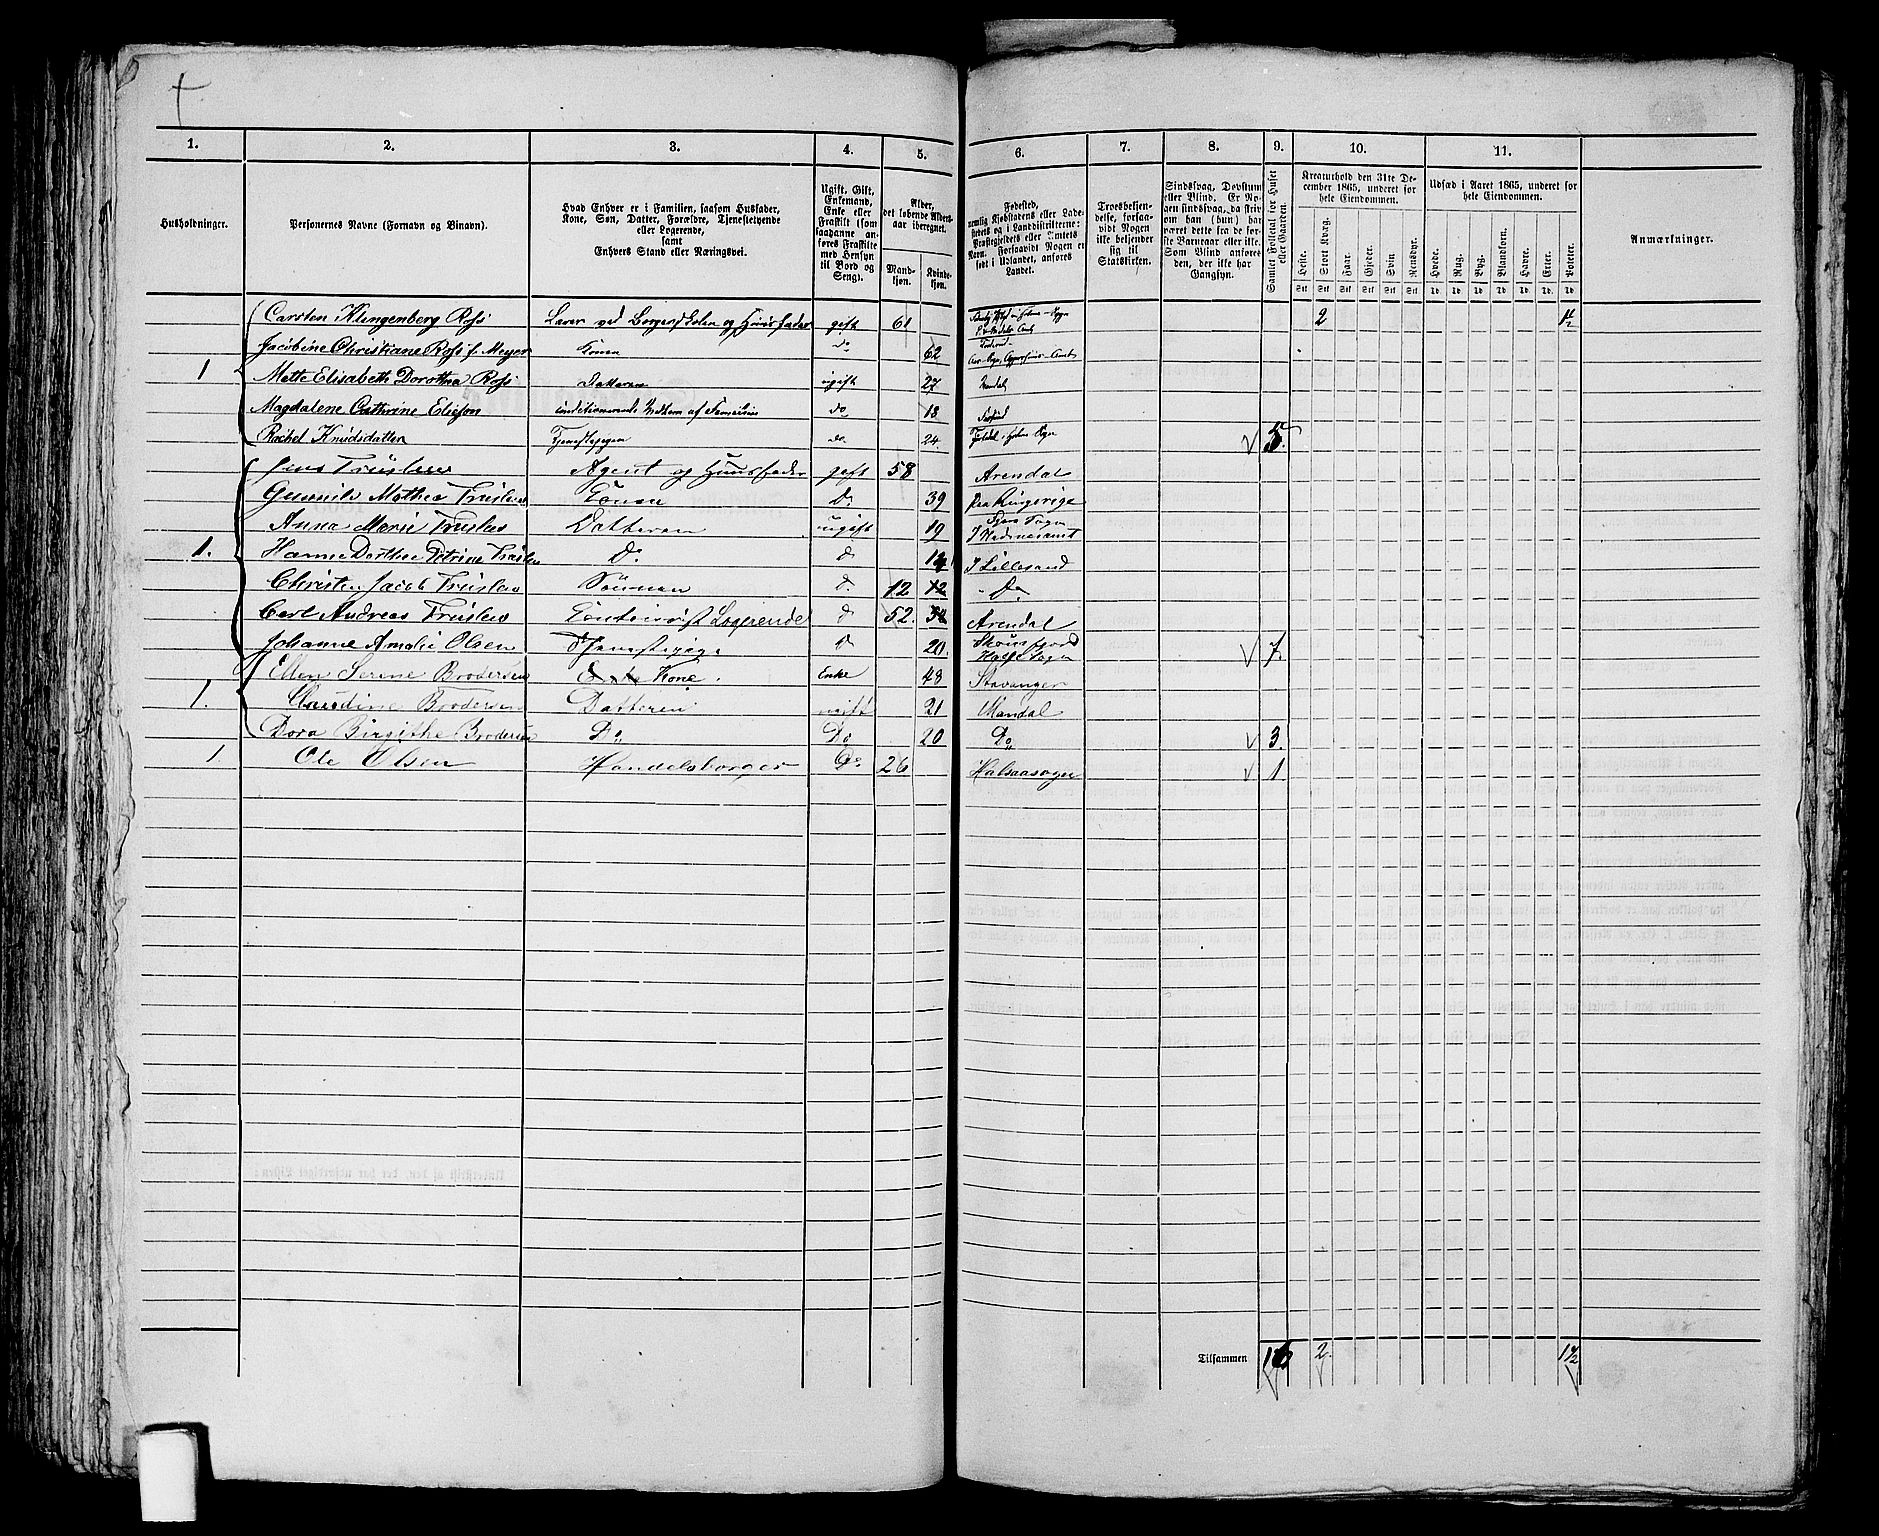 1. 2. 3. 4. 5. 6. 7. 8. 9. 10. 11.
Husholdninger.
Personernes Navne (Fornavn og Binavn).
Hvad Enhver er i Familien, saasom Husfader,
Kone, Søn, Datter, Forældre, Tjenestetyende
eller Logerende,
samt
Enhvers Stand eller Næringsvei.
Ugift, Gift,
Enkemand,
Enke eller
Fraskilt (som
saadanne an-
føres Fraskilte
med Hensyn
til Bord og
Seng).
Alder,
det løbende Alders-
aar iberegnet.
Mand-
kjøn.
Kvinde-
kjøn.
Fødested,
nemlig Kjøbstadens eller Lade-
stedets og i Landdistrikterne:
Præstegjeldets eller Amtets
Navn. Forsaavidt Nogen er
født i Udlandet, anføres
Landet.
Troesbekjen-
delse, forsaa-
vidt Nogen
ikke bekjender
sig til
Statskirken.
Sindssvag, Døvstum
eller Blind. Er No-
gen sindssvag, da skriv
om han (hun) har
været dette fra de før-
ste Barneaar eller ikke.
Som Blind anføres
den, der ikke har
Gangsyn.
Samlet Folketal for Huset
eller Gaarden.
Kreaturhold den 31te De-
cember 1865, underet for
hele Eiendommen.
Heste. Stort Kvæg. Faar. Gjeder. Svin. Rensdyr.
Stk Stk Stk Stk Stk Stk
Udsæd i Aaret 1865, underet for
hele Eiendommen.
Hvede. Rug. Byg. Blandkorn. Havre. Erter. Poteter.
Td. Td. Td. Td. Td. Td. Td.
Anmærkninger.
Carsten Klingenberg Ross Lærer ved Borgerskolen og Huusfader gift 61 2 1½
Jacobine Christiane Ross f. Meyer Konen do 62
1 Mette Elisabeth Dorothea Ross Datteren ugift 27 Mandal
Magdalene Cathrine Eliesøn conditionerende Medlem af Familien do 18
Rachel Knudsdatter Tjenestepigen do 24 5.
Jens Truslew Agent og Huusfader gift 58 Arendal
Gunnild Mathea Truslew Konen Do 39 Paa Ringerige
Anna Marie Truslew Datteren ugift 19
1. Hanne Dorthea Petrine Truslew Do Do I Lillesand
Christen Jacob Truslew Sønnen Do 12 12 Do
Carl Andreas Truslew Contorist Logerende Do 52. Arendal
Johanne Amalie Olsen Tjenestepige Do 20. 7.
Ellen Serine Brodersen Kone. Enke 48 Stavanger
1. Brodersen Datteren ugift 21 Mandal
Dora Birgithe Brodersen Do Do 20 Do 3.
1 Ole Olsen Handelsborger Do 26 Halsaasogn 1
Tilsammen 16 2. 1½